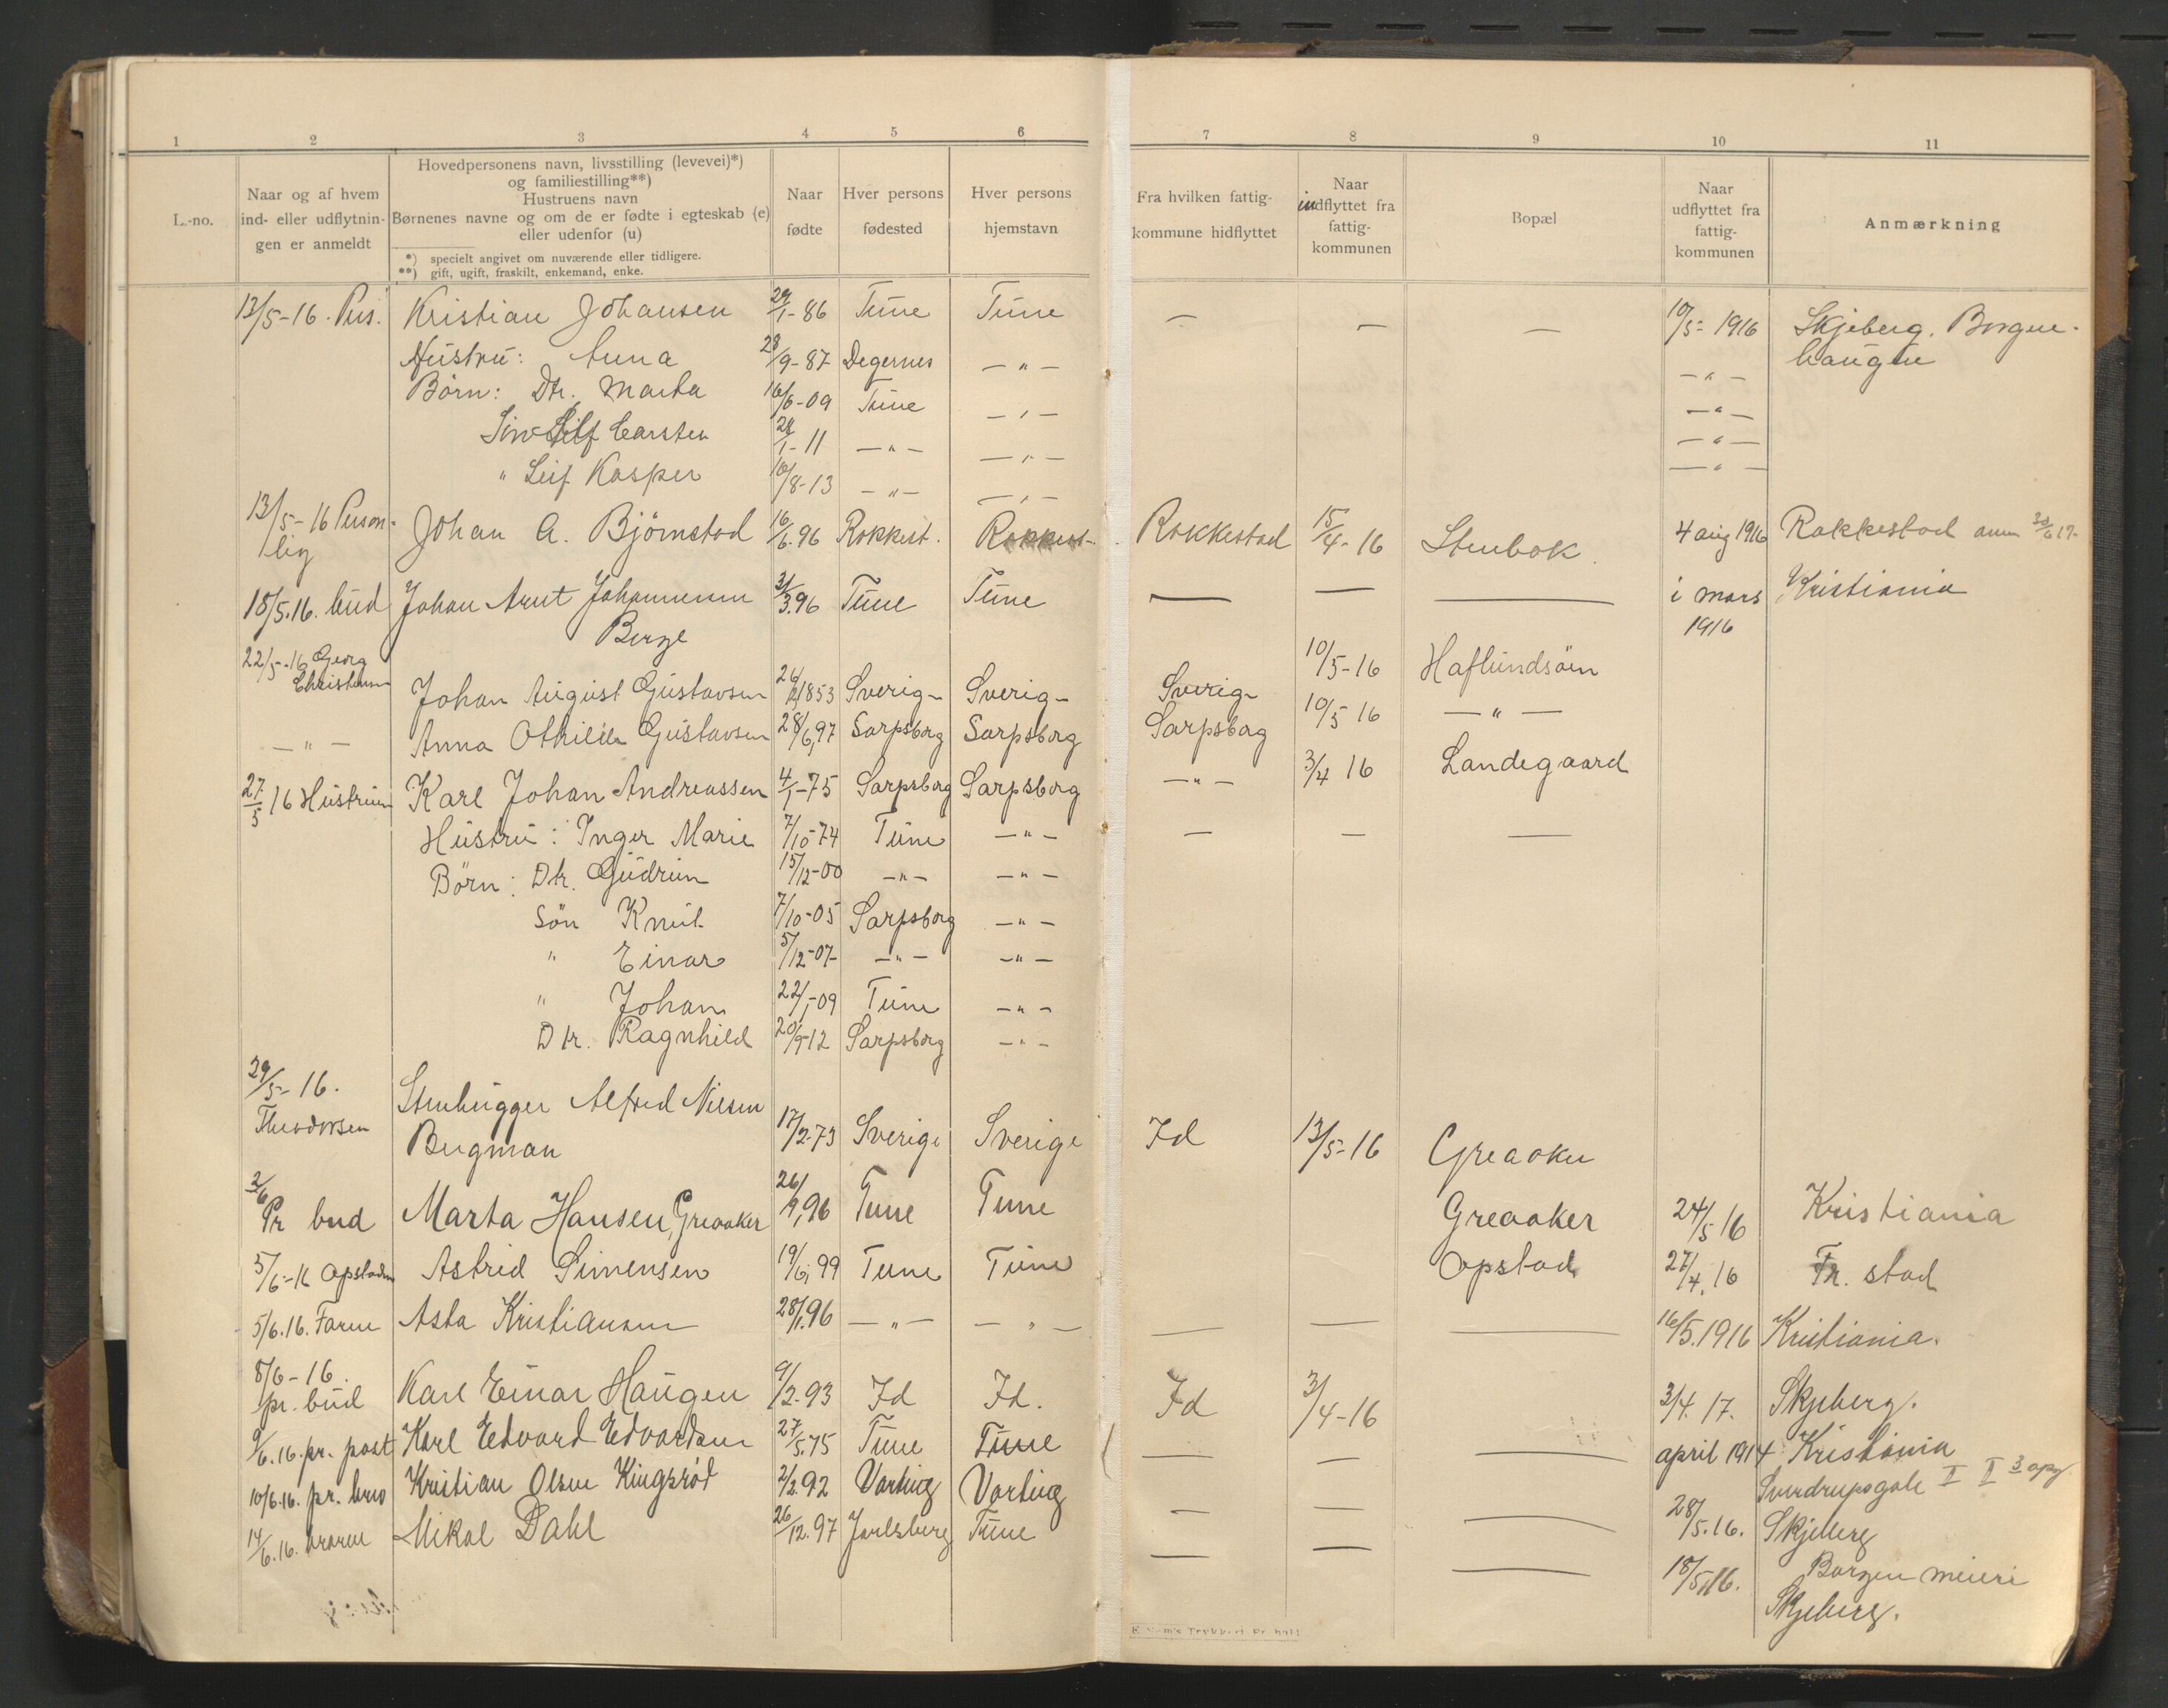 1 2 3 4 5 6 7 8 9 10 11
L.-no.
Naar og af hvem
ind- eller udflytnin-
gen er anmeldt
Hovedpersonens navn, livsstilling (levevei)*)
og familiestilling**)
Hustruens navn
Børnenes navne og om de er fødte i egteskab (e)
eller udenfor (u)
*) specielt angivet om nuværende eller tidligere.
**) gift, ugift, fraskilt, enkemand, enke.
Naar
fødte
Hver persons
fødested
Hver persons
hjemstavn
Fra hvilken fattig-
kommune hidflyttet
Naar
indflyttet fra
fattig-
kommunen
Bopæl
Naar
udflyttet fra
fattig-
kommunen
Anmærkning
13/5-16. Pers. Kristian Johansen 29/1-86 Tune Tune — — — 10/5-1916 Skjeberg. Borgen-
haugen
Hustru: Anna 28/9-87 Degernes —"— —"—
Børn: Dtr. Marta 16/6-09 Tune —"— —"—
Carsten 28/1-11 —"— —"— —"—
" Leif Kasper 10/8-13 —"— —"— —"—
13/5-16 Person-
lig
Johan A. Bjørnstad 16/6.96 Rokkest. Rokkest. Rokkestad 15/4-16 Stenbok. 4 aug 1916 Rakkestad anm 30/6 17.
18/5.16. bud Johan Arnt Johannesen 31/3.96 Tune Tune — — — i mars
1916 Kristiania
Berge
22/5-16 Georg
Christensen
Johan August Gustavsen 26/1853 Sverig- Sverig- Sverig- 10/5-16 Haflundsøen
—"— Anna Othilie Gustavsen 28/6,97 Sarpsborg Sarpsborg Sarpsborg 10/5 16 —"—
27/5 16 Hustruen Karl Johan Andreassen 4/1-75 Sarpsborg Sarpsborg —"— 3/4 16 Landegaard
Hustru: Inger Marie 7/10-74 Tune —"— — — —
Børn: Dtr. Gudrun 15/12-00 —"— —"—
Søn Knut 7/10-05 Sarpsborg —"—
" Einar 5/12-07 —"— —"—
" Johan 22/1-09 Tune —"—
Dtr. Ragnhild 20/9-12 Sarpsborg —"—
29/5-16.
Theodorsen
Stenhugger Alfred Nilsen
Bergman 17/2-73 Sverige Sverige Id 13/5-16 Greaaker
2/6
Pr bud Marta Hansen, Greaaker 26/9,96 Tune Tune Greaaker 24/5 16 Kristiania
5/6-16 Opstaden Astrid Simensen 19/6,99 Tune Tune Opstad 27/4.16 Fr. stad
5/6.16. Faren Asta Kristiansen 28/1.96 —"— —"— — — — 16/5.1916 Kristiania.
8/6-16.
pr. bud Karl Einar Haugen 9/2-93 Id Id. Id 3/4-16 3/4. 17. Skjeberg.
9/6.16. pr. post Karl Edvard Edvardsen 27/5.75 Tune Tune — — — april 1914 Kristiania
Sverdrupsgate I II 3 opg.
10/6.16. pr. brev Kristian Olsen Kingsrød 2/3.92 Varteig Varteig — — — 28/5.16. Skjeberg
14/6.16. Mikal Dahl 26/12.97 Jarlsberg Tune — — — 18/5.16. Borgen meieri
Skjeberg.